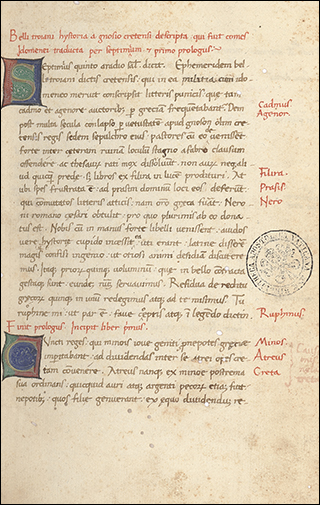 Belli troiani hystoria a gnosio cretensi descripta qui fuit comes
Idomenei traducta per septimium et primo prologus.
Septimius quinto aradio sal. dicit. Ephemeridem bel
li troiani dictis cretensis. qui in ea militia cum ido
meneo meruit conscripsit litteris punicis quae tum
cadmo et agenore auctoribus p greciam frequentabant. Dein
post multa secula conlapso p vetustatem apud gnoson olim cre
tensis regis sedem sepulchro eius pastores cum eo devenissent
forte inter ceteram ruinam loculum stagno affabre clausum
offendere ac thesaurum rati mox dissolvunt non aurum nec ali
ud
libros ex filira in lucem produxere. At
ubi spes frustrata est ad praxim dominum loci eos deferunt
qui comutatos litteris atticis nam oro greca fuat Nero
ni romano cesari obtulit pro quo plurimis ab eo dona
tus est. Nobis cum in manus forte libelli venissent avidos
vere hystorie cupido incessit ea uti erant latine disserere
magis confisi ingenio ut otiosi animi desidiam discutere
mus. Itaq priorum quinq voluminum que in bello contracta
gestaq sunt eundem numerum servavimus. Residua de reditu
grecorum quinq in unum redegimus atq ad te misimus. Tu
ruphine mi ut par est fave ceptis atq in legendo dictim.
Finit prologus. Incipit liber primus.
Cuncti reges qui minois iove geniti pnepotes greciae
imptabant ad dividendas inter se atrei opes cre
tam convenere. Atreus nanq ex minoe postrema
sua ordinans quicquid auri atq argenti pecorum etiam fuit
nepotibus quos filie genuerant ex equo dividendum re
Cadmus
Agenor.
Filira.
Prasis.
Nero
Ruphinus.
Minos.
Atreus
Creta